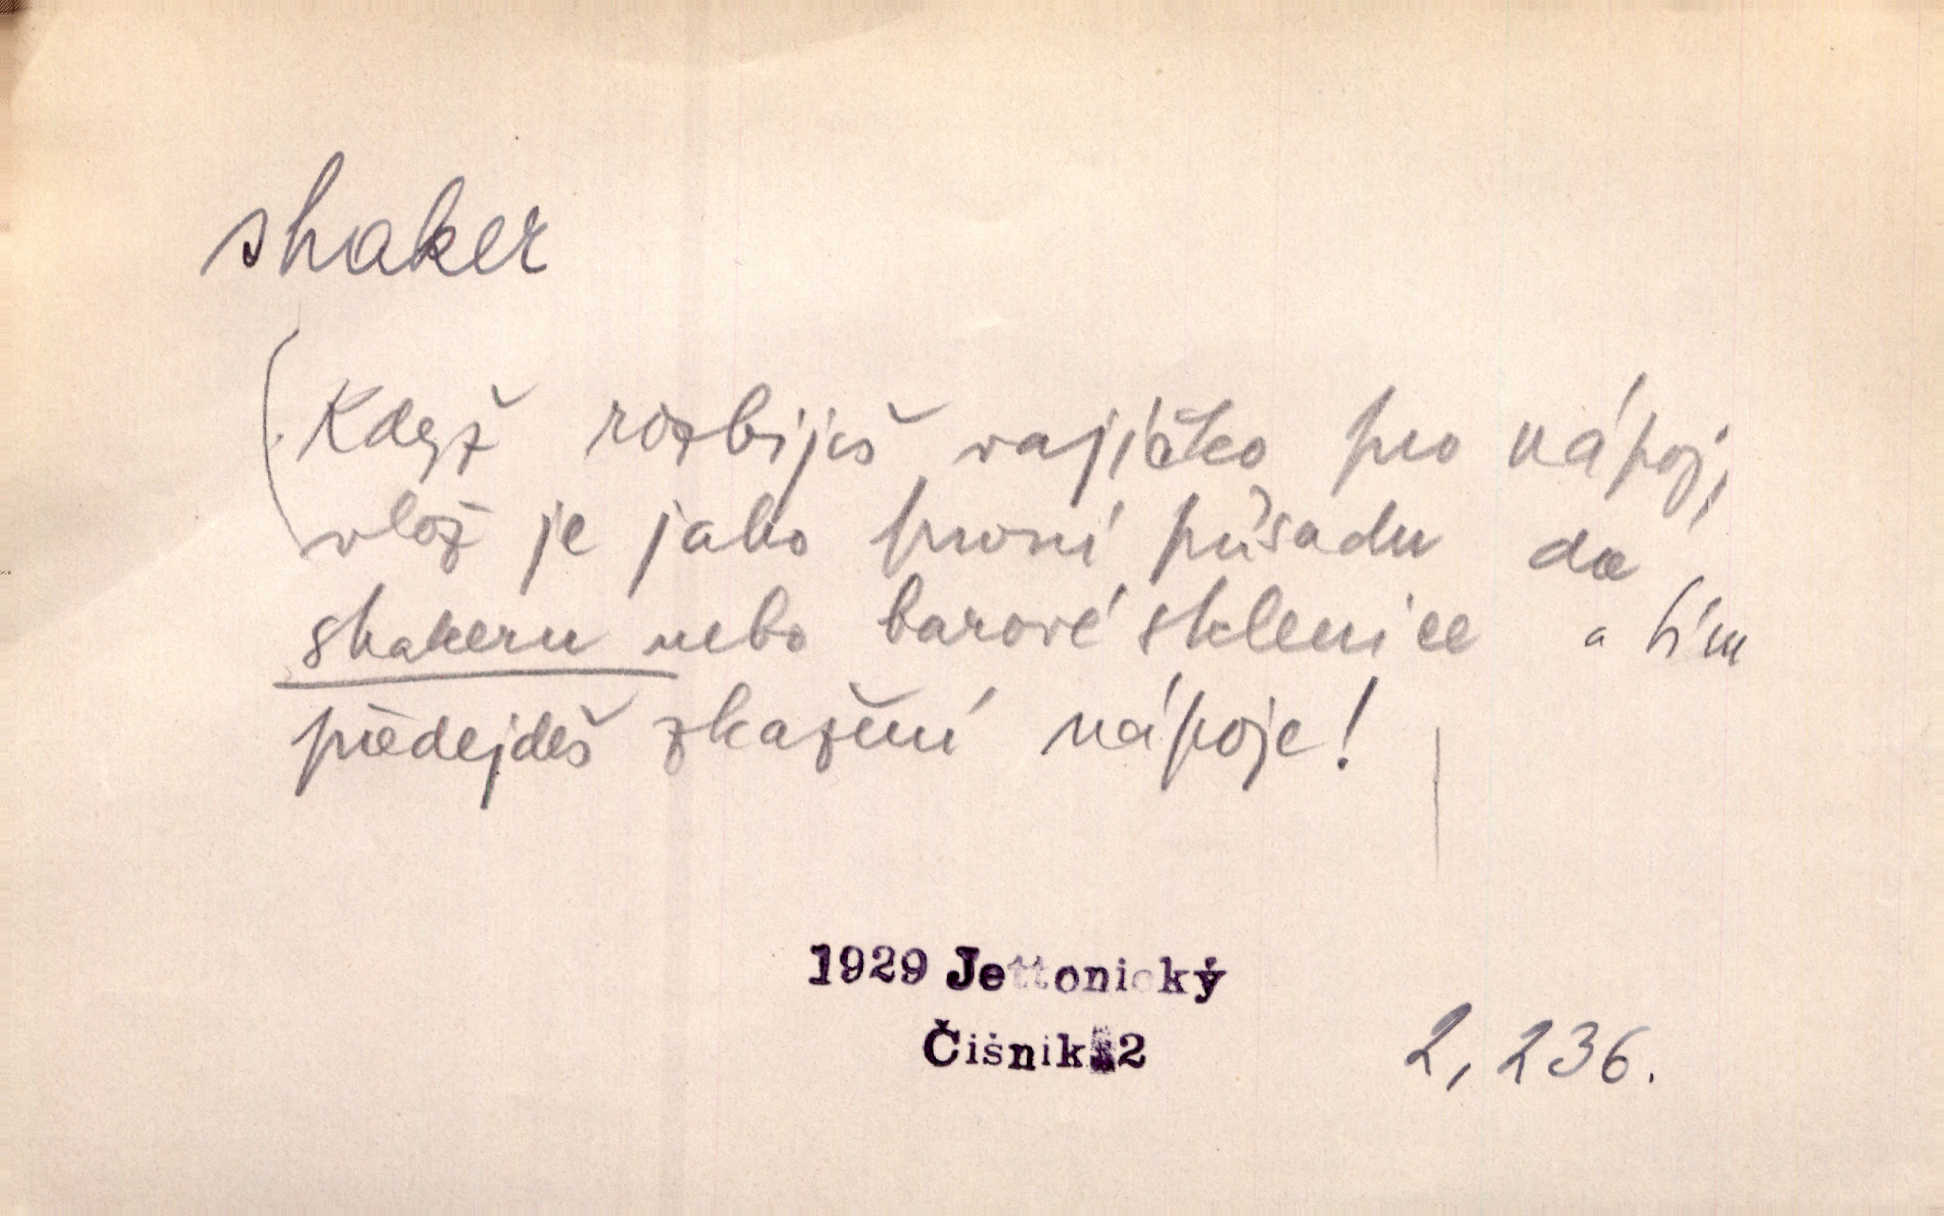 shaker
(Když rozbiješ vajíčko pro nápoj,
vlož je jako první přísadu do
shakeru nebo barové sklenice a tím
předejdeš zkažení nápoje!
1929 Jettonický
Čišnik 2
2, 236.